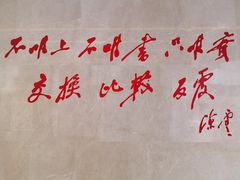 不唯上 不唯书 只唯实
交换 比较 反复
陈云